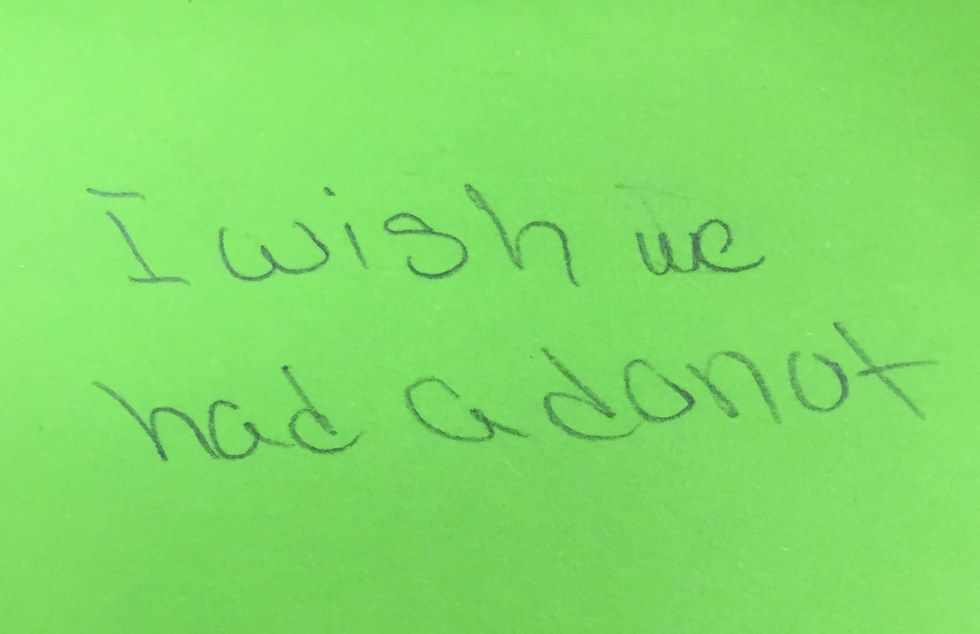 I wish we
had a donot